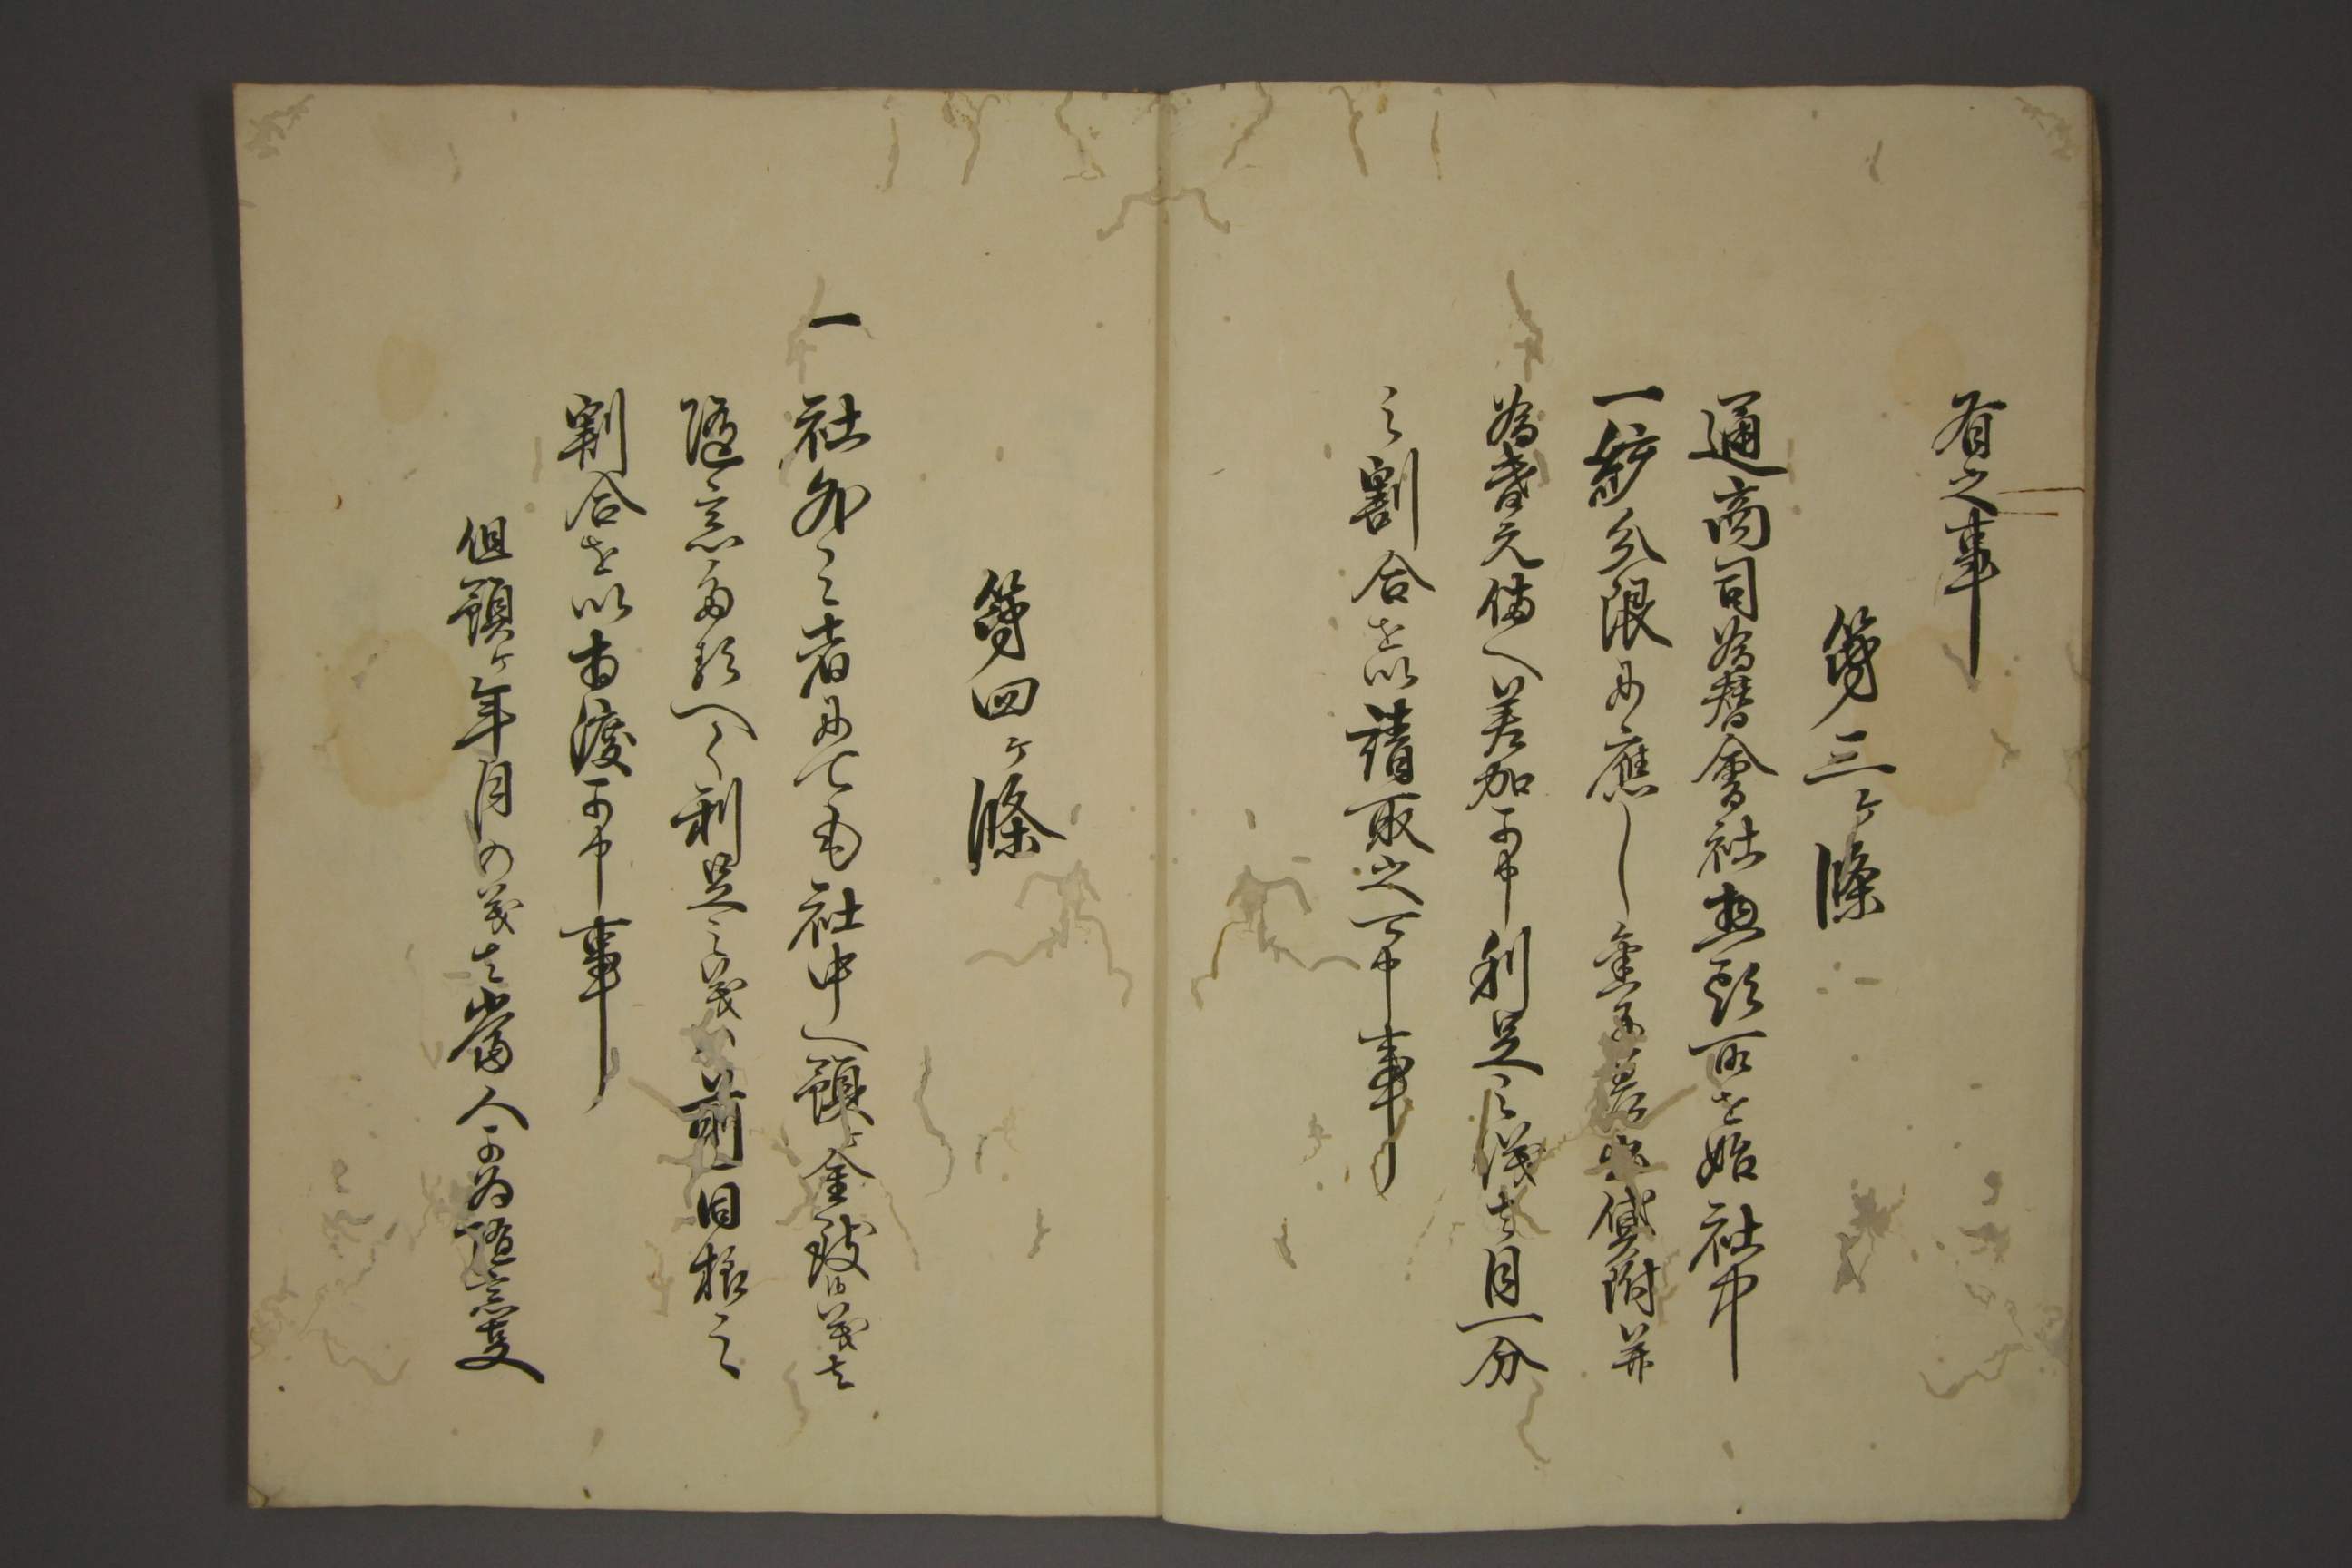 有之事
第三ヶ條
通商司為替會社惣頭取を始社中
一統分限に應し金子差出貸附并
為替元備へ差加可申利足之儀者月一分
之割合を以請取之可申事
第四ヶ條
一 社外之者にても社中へ預ヶ金致候義者
随意たるへく利足之義ハ前同様之
割合を以相渡可申事
但預ヶ年月の義者當人可為随意事